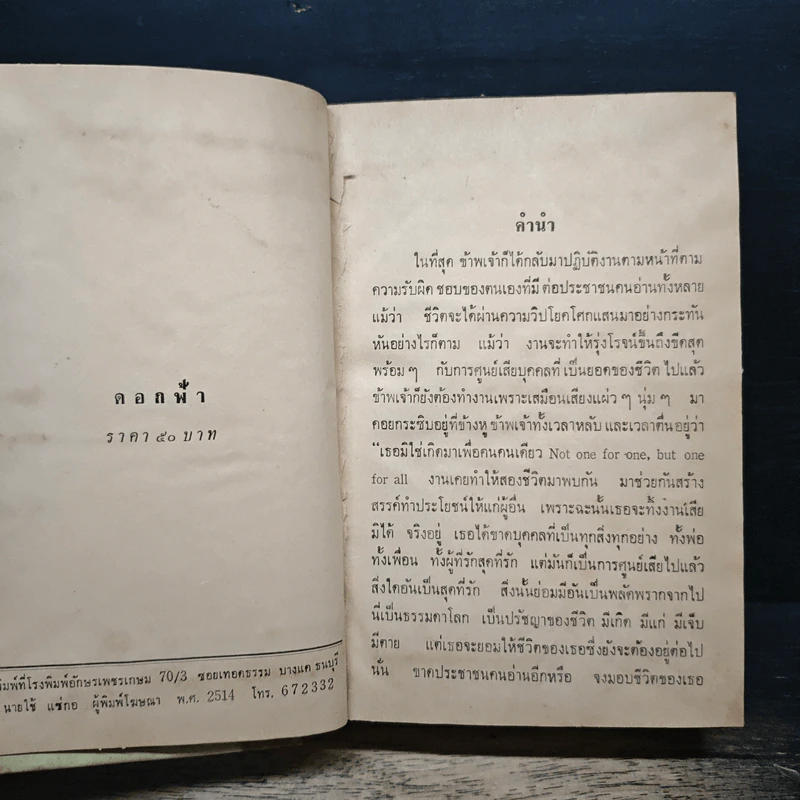 ดอกฟ้า
ราคา ๕๐ บาท
พิมพ์ที่โรงพิมพ์อักษรเพชรเกษม 70/3 ซอยเทอดธรรม บางแค ธนบุรี
นายใช้ แซ่กอ ผู้พิมพ์โฆษณา พ.ศ. 2514 โทร. 672332
คำนำ
ในที่สุด ข้าพเจ้าก็ได้กลับมาปฏิบัติงานตามหน้าที่ตาม
ความรับผิด ชอบของตนเองที่มี ต่อประชาชนคนอ่านทั้งหลาย
แม้ว่า ชีวิตจะได้ผ่านความวิปโยคโศกแสนมาอย่างกระทัน
หันอย่างไรก็ตาม แม้ว่า งานจะทำให้รุ่งโรจน์ขึ้นถึงขีดสุด
พร้อม ๆ กับการศูนย์เสียบุคคลที่ เป็นยอดของชีวิต ไปแล้ว
ข้าพเจ้าก็ยังต้องทำงานเพราะเสมือนเสียงแผ่ว ๆ นุ่ม ๆ มา
คอยกระซิบอยู่ที่ข้างหู ข้าพเจ้าทั้งเวลาหลับ และเวลาตื่นอยู่ว่า
"เธอมิใช่เกิดมาเพื่อคนคนเดียว Not one for one, but one
for all งานเคยทำให้สองชีวิตมาพบกัน มาช่วยกันสร้าง
สรรค์ทำประโยชน์ให้แก่ผู้อื่น เพราะฉะนั้นเธอจะทิ้งงานเสีย
มิได้ จริงอยู่ เธอได้ขาดบุคคลที่เป็นทุกสิ่งทุกอย่าง ทั้งพ่อ
ทั้งเพื่อน ทั้งผู้ที่รักสุดที่รัก แต่มันก็เป็นการศูนย์เสียไปแล้ว
สิ่งใดอันเป็นสุดที่รัก สิ่งนั้นย่อมมีอันเป็นพลัดพรากจากไป
นี่เป็นธรรมดาโลก เป็นปรัชญาของชีวิต มีเกิด มีแก่ มีเจ็บ
มีตาย แต่เธอจะยอมให้ชีวิตของเธอซึ่งยังจะต้องอยู่ต่อไป
นั้น ขาดประชาชนคนอ่านอีกหรือ จงมอบชีวิตของเธอ